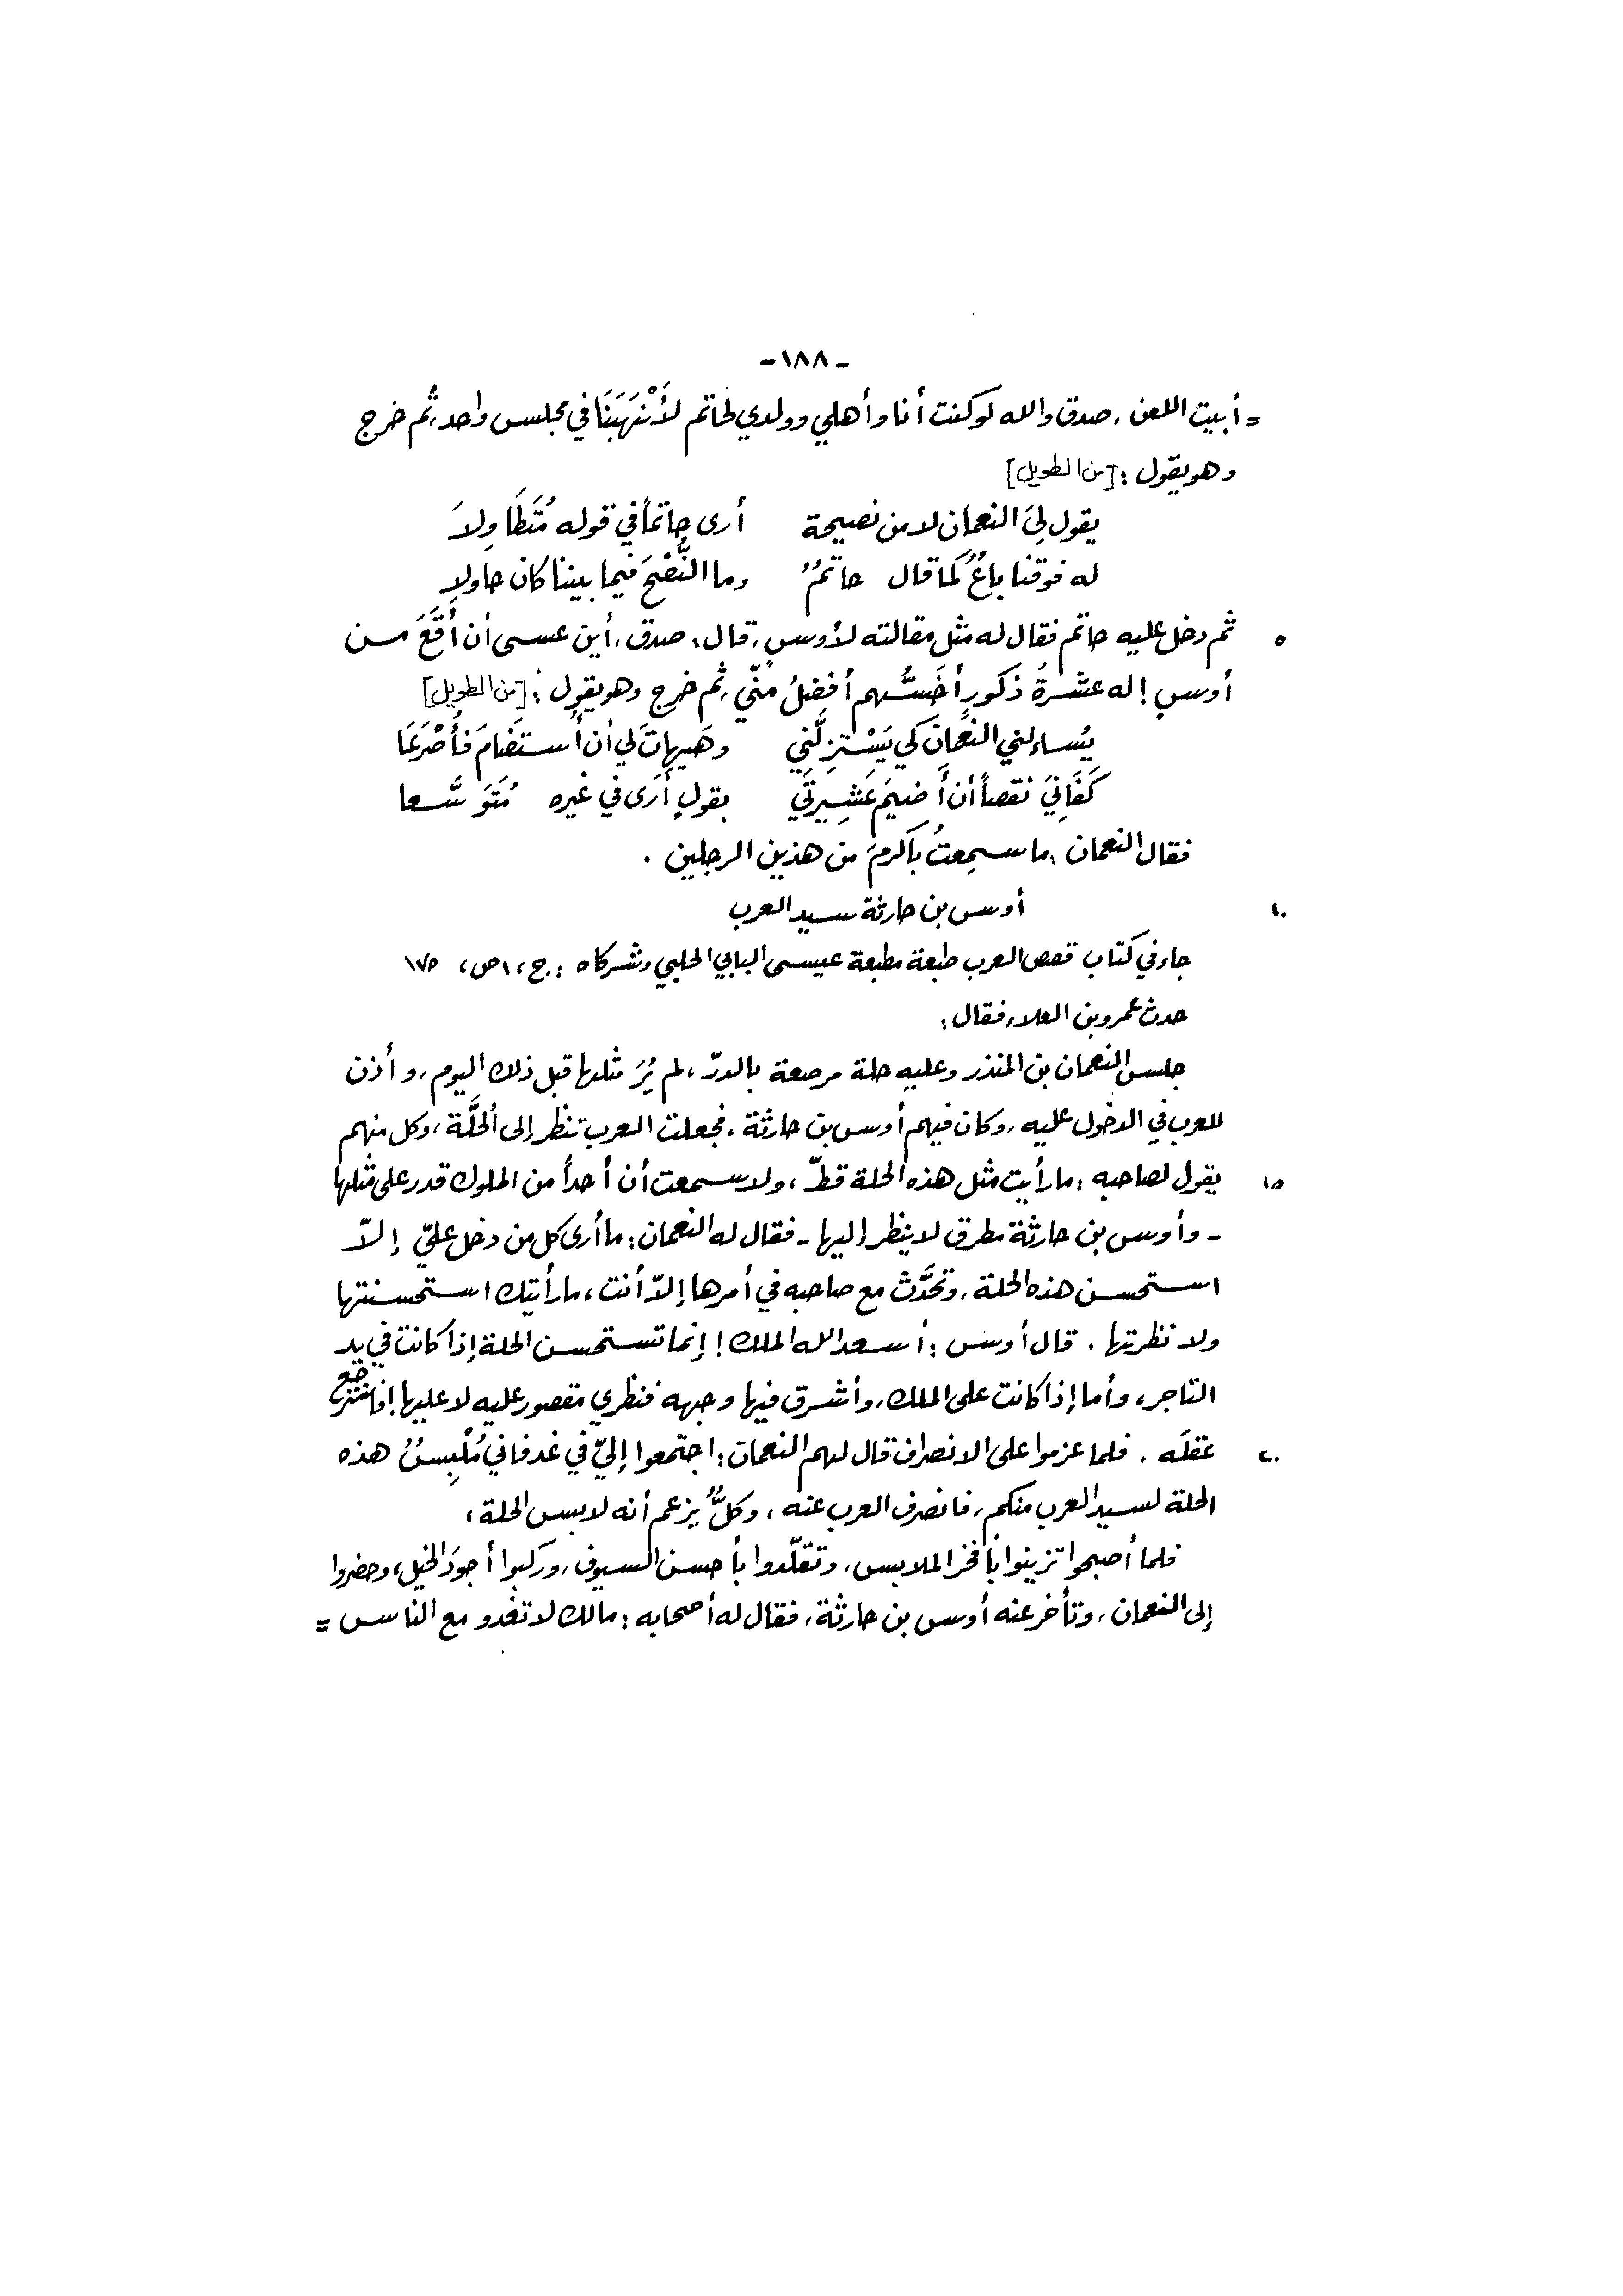 -١٨٨-
= أبيت اللعن، صدق والله لو كنت أنا وأهلي وولدي لحاتم لأَنْهَبَنَا في مجلس واحد، ثم خرج
وهو يقول: [من الطويل]
يقول لِيَ النعمان لا من نصيحة أرى حاتماً في قوله مُتَطَاوِلاَ
له فوقنا باعٌ كما قال حاتمٌ وما النُّصْحَ فيما بيننا كان حاولا
٥ ثم دخل عليه حاتم فقال له مثل مقالته لأوسٍ، قال: صدق، أين عسى أن أَقَعَ من
أوسٍ! له عشرةُ ذكورٍ أَخَسُّهم أفضلُ منّي، ثم خرج وهو يقول: [من الطويل]
يُسائلني النعمانُ كي يَسْتزِلَّنِي وهَيهاتَ لي أن أُستضامَ فأُصْرَعَا
كَفَانِيَ نقصاً أن أَضيمَ عَشِيرتي بقولٍ أَرَى في غيره مُتَوَسَّعا
فقال النعمان: ما سمِعتُ بأكرمَ من هذين الرجلين.
١٠ أوس بن حارثة سيد العرب
جاء في كتاب قصص العرب طبعة مطبعة عيسى البابي الحلبي وشركاه: ج، ١ ص، ١٧٥
حدث عمرو بن العلاء فقال:
جلس النعمان بن المنذر وعليه حلة مرصعة بالدرّ، لم يُرَ مثلها قبل ذلك اليوم، وأذن
للعرب في الدخول عليه، وكان فيهم أوس بن حارثة. فجعلت العرب تنظر إلى الحُلَّة، وكل منهم
١٥ يقول لصاحبه: ما رأيت مثل هذه الحلة قطّ، ولا سمعت أن أحداً من الملوك قدر على مثلها
- وأوس بن حارثة مطرق لا ينظر إليها - فقال له النعمان: ما أرى كل من دخل عليّ إلاّ
استحسن هذه الحلة، وتحدَّث مع صاحبه في أمرها إلاّ أنت، ما رأيتك استحسنتها
ولا نظرتها. قال أوس: أسعد الله الملك! إنما تستحسن الحلة إذا كانت في يد
التاجر، وأما إذا كانت على الملك، وأشرق فيها وجهه فنظري مقصور عليه لا عليها!
عقلَه. فلما عزموا على الانصراف قال لهم النعمان: اجتمعوا إليّ في غد فاني مُلْبِسٌ هذه ٢٠
الحلة لسيد العرب منكم، فانصرف العرب عنه، وكلٌّ يزعم أنه لابس الحلة،
فلما أصبحوا تزينوا بأفخر الملابس، وتقلّدوا بأحسن السيوف، وركبوا أجودَ الخيل، وحضروا
إلى النعمان، وتأخر عنه أوس بن حارثة، فقال له أصحابه: مالك لا تغدو مع الناس =